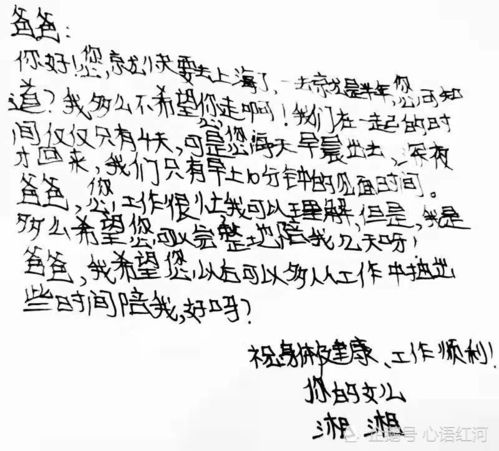 爸爸:
你好!您就快要去上海了,一去就是半年,您可知
道?我多么不希望你走啊!我们在一起的时
间仅仅只有4天,可是您每天早晨出去,深夜
才回来,我们只有早上10分钟的见面时间。
爸爸,您工作很忙我可以理解,但是,我是
多么希望您可以完整地陪我几天呀!
爸爸,我希望您以后可以多从工作中抽出
些时间陪我,好吗?
祝身体健康、工作顺利!
你的女儿
湘湘
企鹅号 心语红河